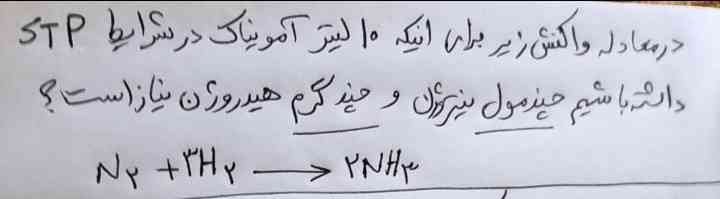 در معادله واکنش زیر برای اینکه ۱۰ لیتر آمونیاک در شرایط STP
داشته باشیم چند مول نیتروژن و چند گرم هیدروژن نیاز است؟
N۲ + ۳H۲ ⟶ ۲NH۳